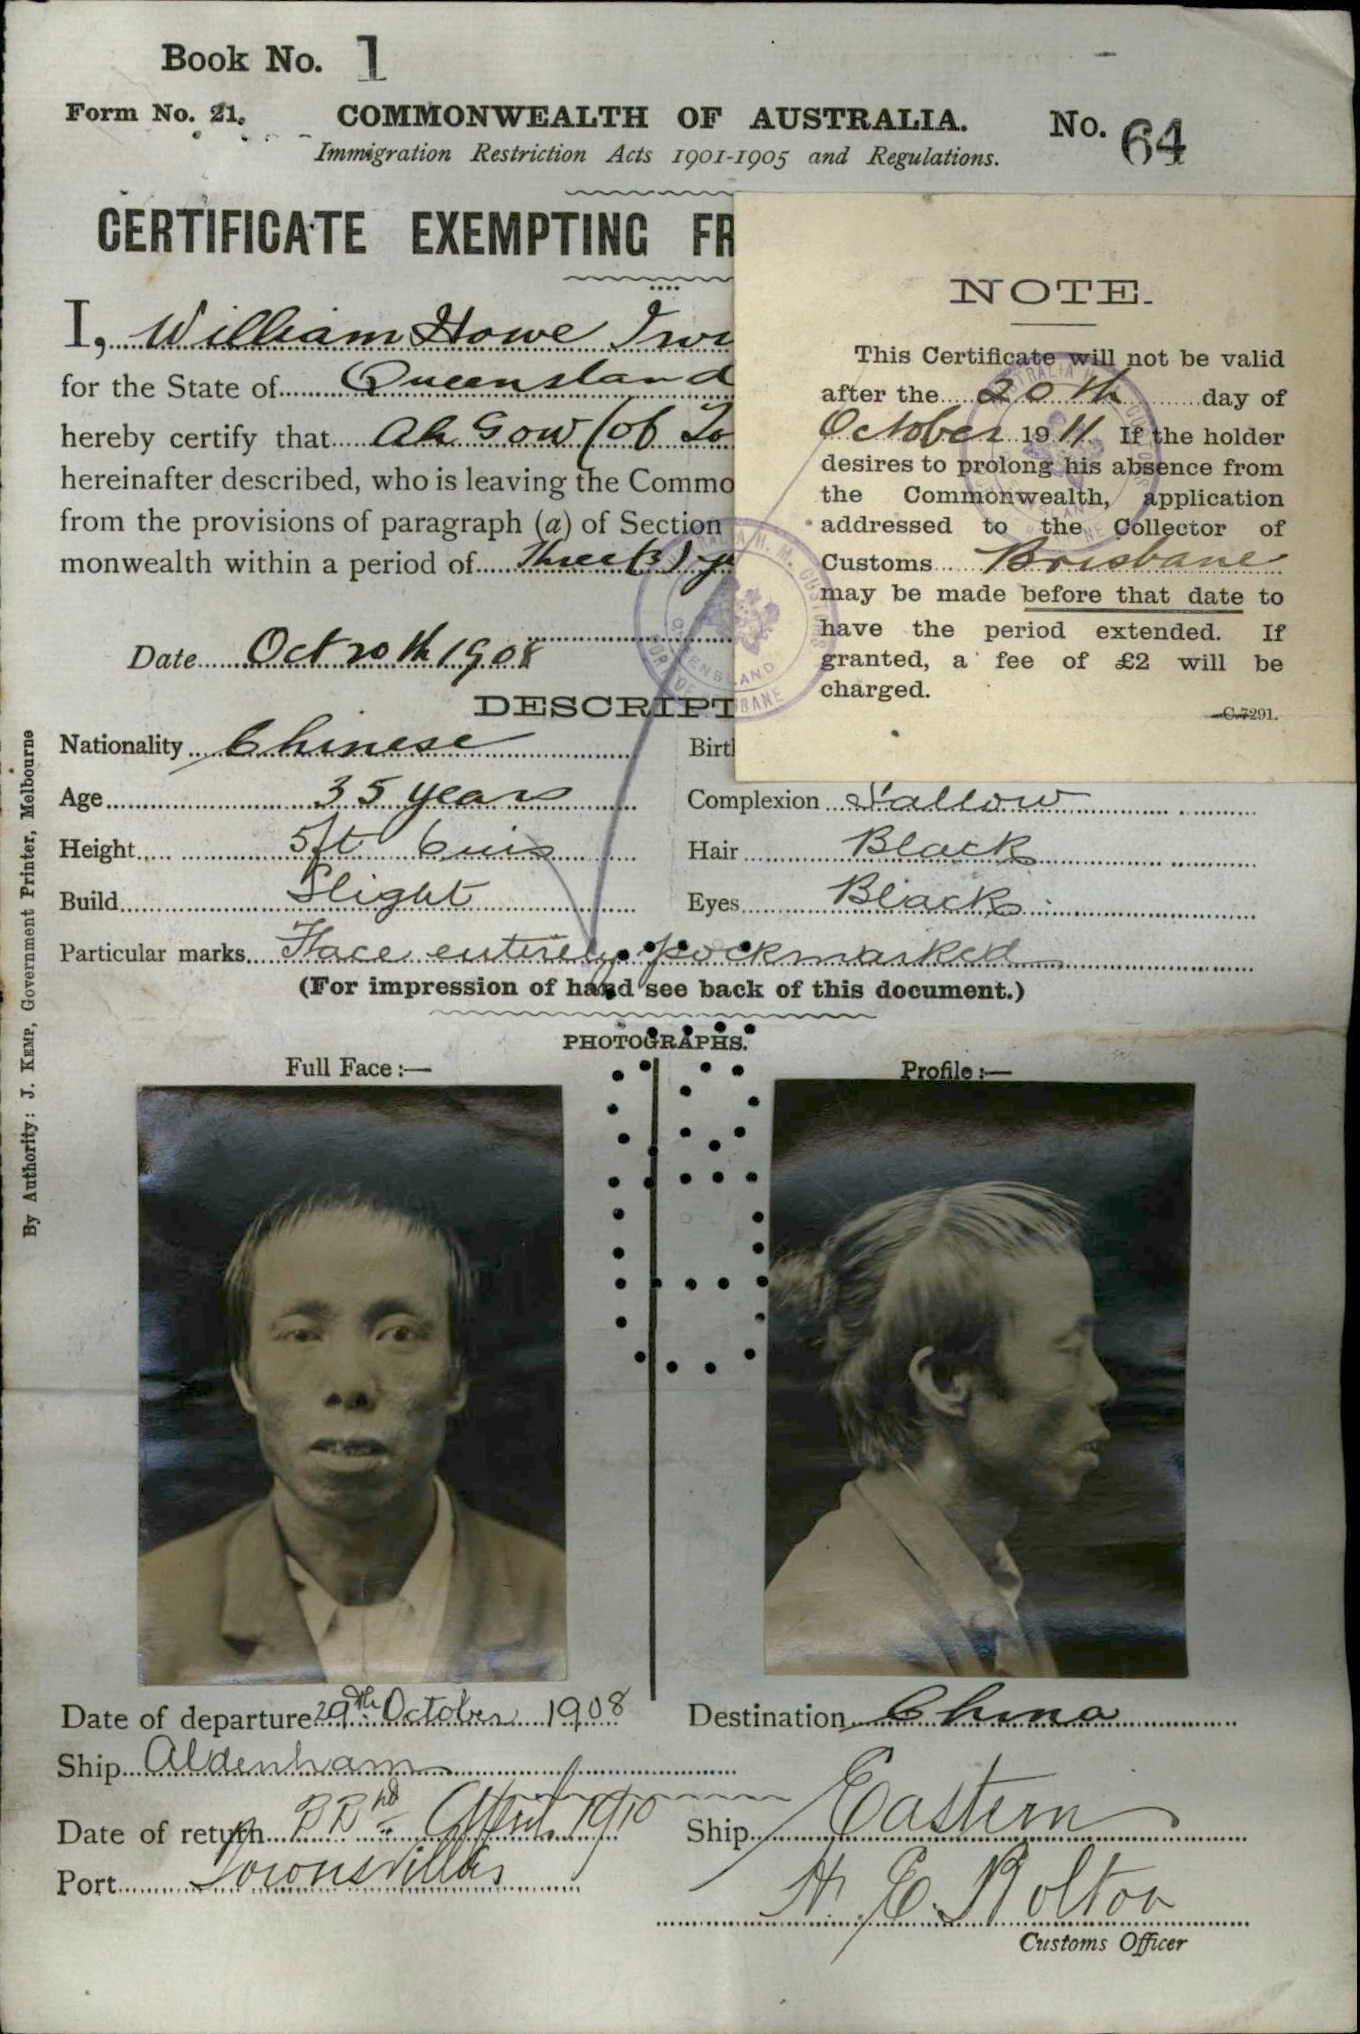 Book No. 1
Form No. 21. COMMONWEALTH OF AUSTRALIA. No. 64
Immigration Restriction Acts 1901-1905 and Regulations.
CERTIFICATE EXEMPTING FR
I, William Howe Irwi
for the State of Queensland
hereby certify that Ah Gow (of To
hereinafter described, who is leaving the Commo
from the provisions of paragraph (a) of Section
monwealth within a period of Three (3) y
Date Oct 20th 1908
NOTE.
This Certificate will not be valid
after the 20th day of
October 1911. If the holder
desires to prolong his absence from
the Commonwealth, application
addressed to the Collector of
Customs Brisbane
may be made before that date to
have the period extended. If
granted, a fee of £2 will be
charged.
C.7291.
DESCRIPT
Nationality Chinese Birt
Age 35 years Complexion Sallow
Height 5ft 6ins Hair Black
Build Slight Eyes Black
Particular marks Face entirely pockmarked
(For impression of hand see back of this document.)
PHOTOGRAPHS.
Full Face :— Profile :—
Date of departure 29th October 1908 Destination China
Ship Aldenham
Date of return April 1910 Ship Eastern
Port Townsville
H. E. Bolton
Customs Officer
By Authority: J. KEMP, Government Printer, Melbourne